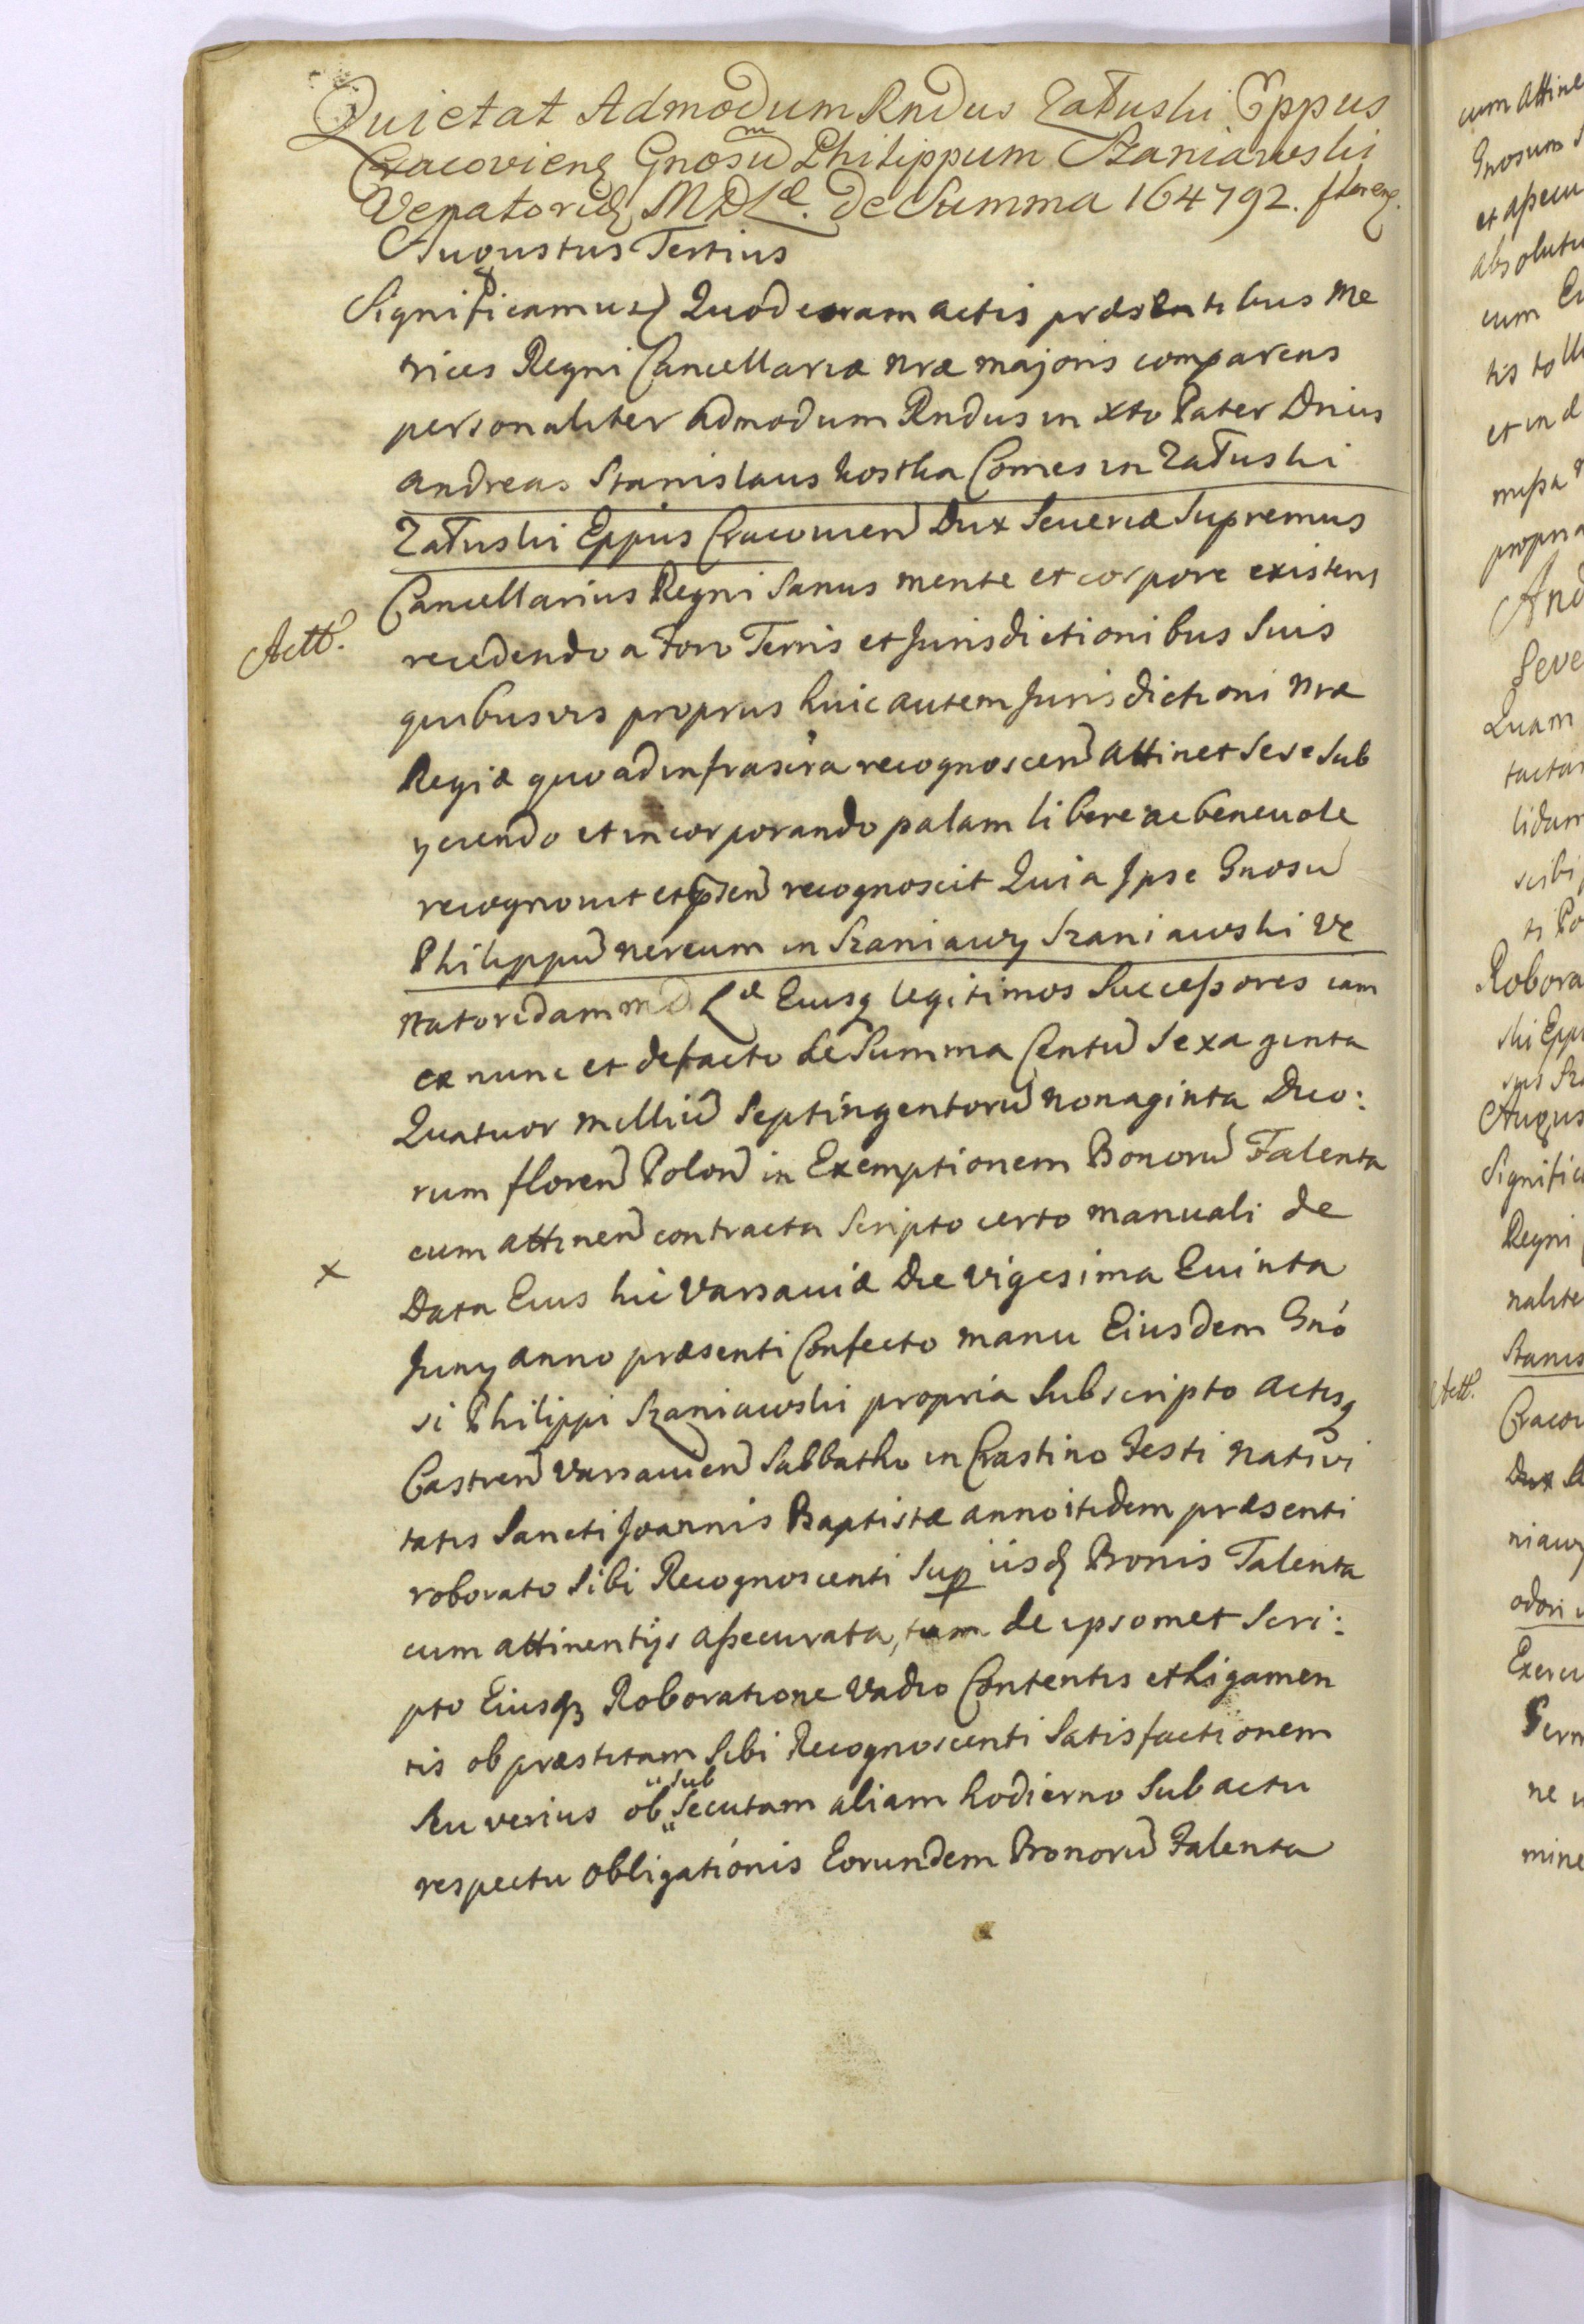 Quietat Admodum Rndus Załuski Eppus
Cracovienẜ Gnosum Philippum Szaniawski
Venatoridę MDLæ. de Summa 164792. floren.
Augustus Tertius
Significamus) Quod coram actis præsentibus Me
trices Regni Cancellariæ nræ majoris comparens
personaliter admodum Rndus in Xto Pater Dnus
Andreas Stanislaus kostka Comes in Załuski
Załuski Eppus Cracovien Dux Severiæ Supremus
Cancellarius Regni Sanus mente et corpore existens
Actt.
recedendo a Foro Terris et Jurisdictionibus Suis
quibusvis proprus huic autem Jurisdictioni nræ
Regiæ quo ad infrascra recognoscen attinet Sese Sub
yciendo et incorporando palam libere ac benevole
recognovit et psen recognoscit Quia Ipse Gnosu
Philippu nereum in Szaniawy Szaniawski Ve
natoridam M D Læ Eiusq legitimos Successores iam
ex nunc et defacto de Summa Centu Sexaginta
Quatuor milliu Septingentoru nonaginta Duo:
rum floren Polon in Exemptionem Bonoru Talenta
cum attinen contracta Scripto certo manuali de
x
Data Eius hic Varsaviæ Die vigesima Quinta
Juny anno præsenti Confecto manu Eiusdem Gno
si Philippi Szaniawski propria Subscripto actisq
Castren Varsavien Sabbatho in Crastino Festi nativi
tatis Sancti Joannis Baptistæ anno itidem præsenti
roborato Sibi Recognoscenti Sup iisd Bonis Talenta
cum attinentijs assecurata, tum de ipsomet Scri:
pto Eiusq Roboratione Vadio Contentis et Ligamen
tis ob præstitam Sibi Recognoscenti Satisfactionem
Seu verius ob "sub" Secutam aliam hodierno Sub actu
respectu obligationis Eorundem Bonoru Talenta
cum attine
Gnosum
et assecu
absolutu
cum
tis to
et in d
missa
propria
And
Seve
Quam
tactam
lidam
scibi
ti Po
Robora
ski Epp
sus Sz
Augus
Signific
Regni
nalite
Stanis
Actt.
Cracov
Dux
niawy
odori
Exerci
ne
mine